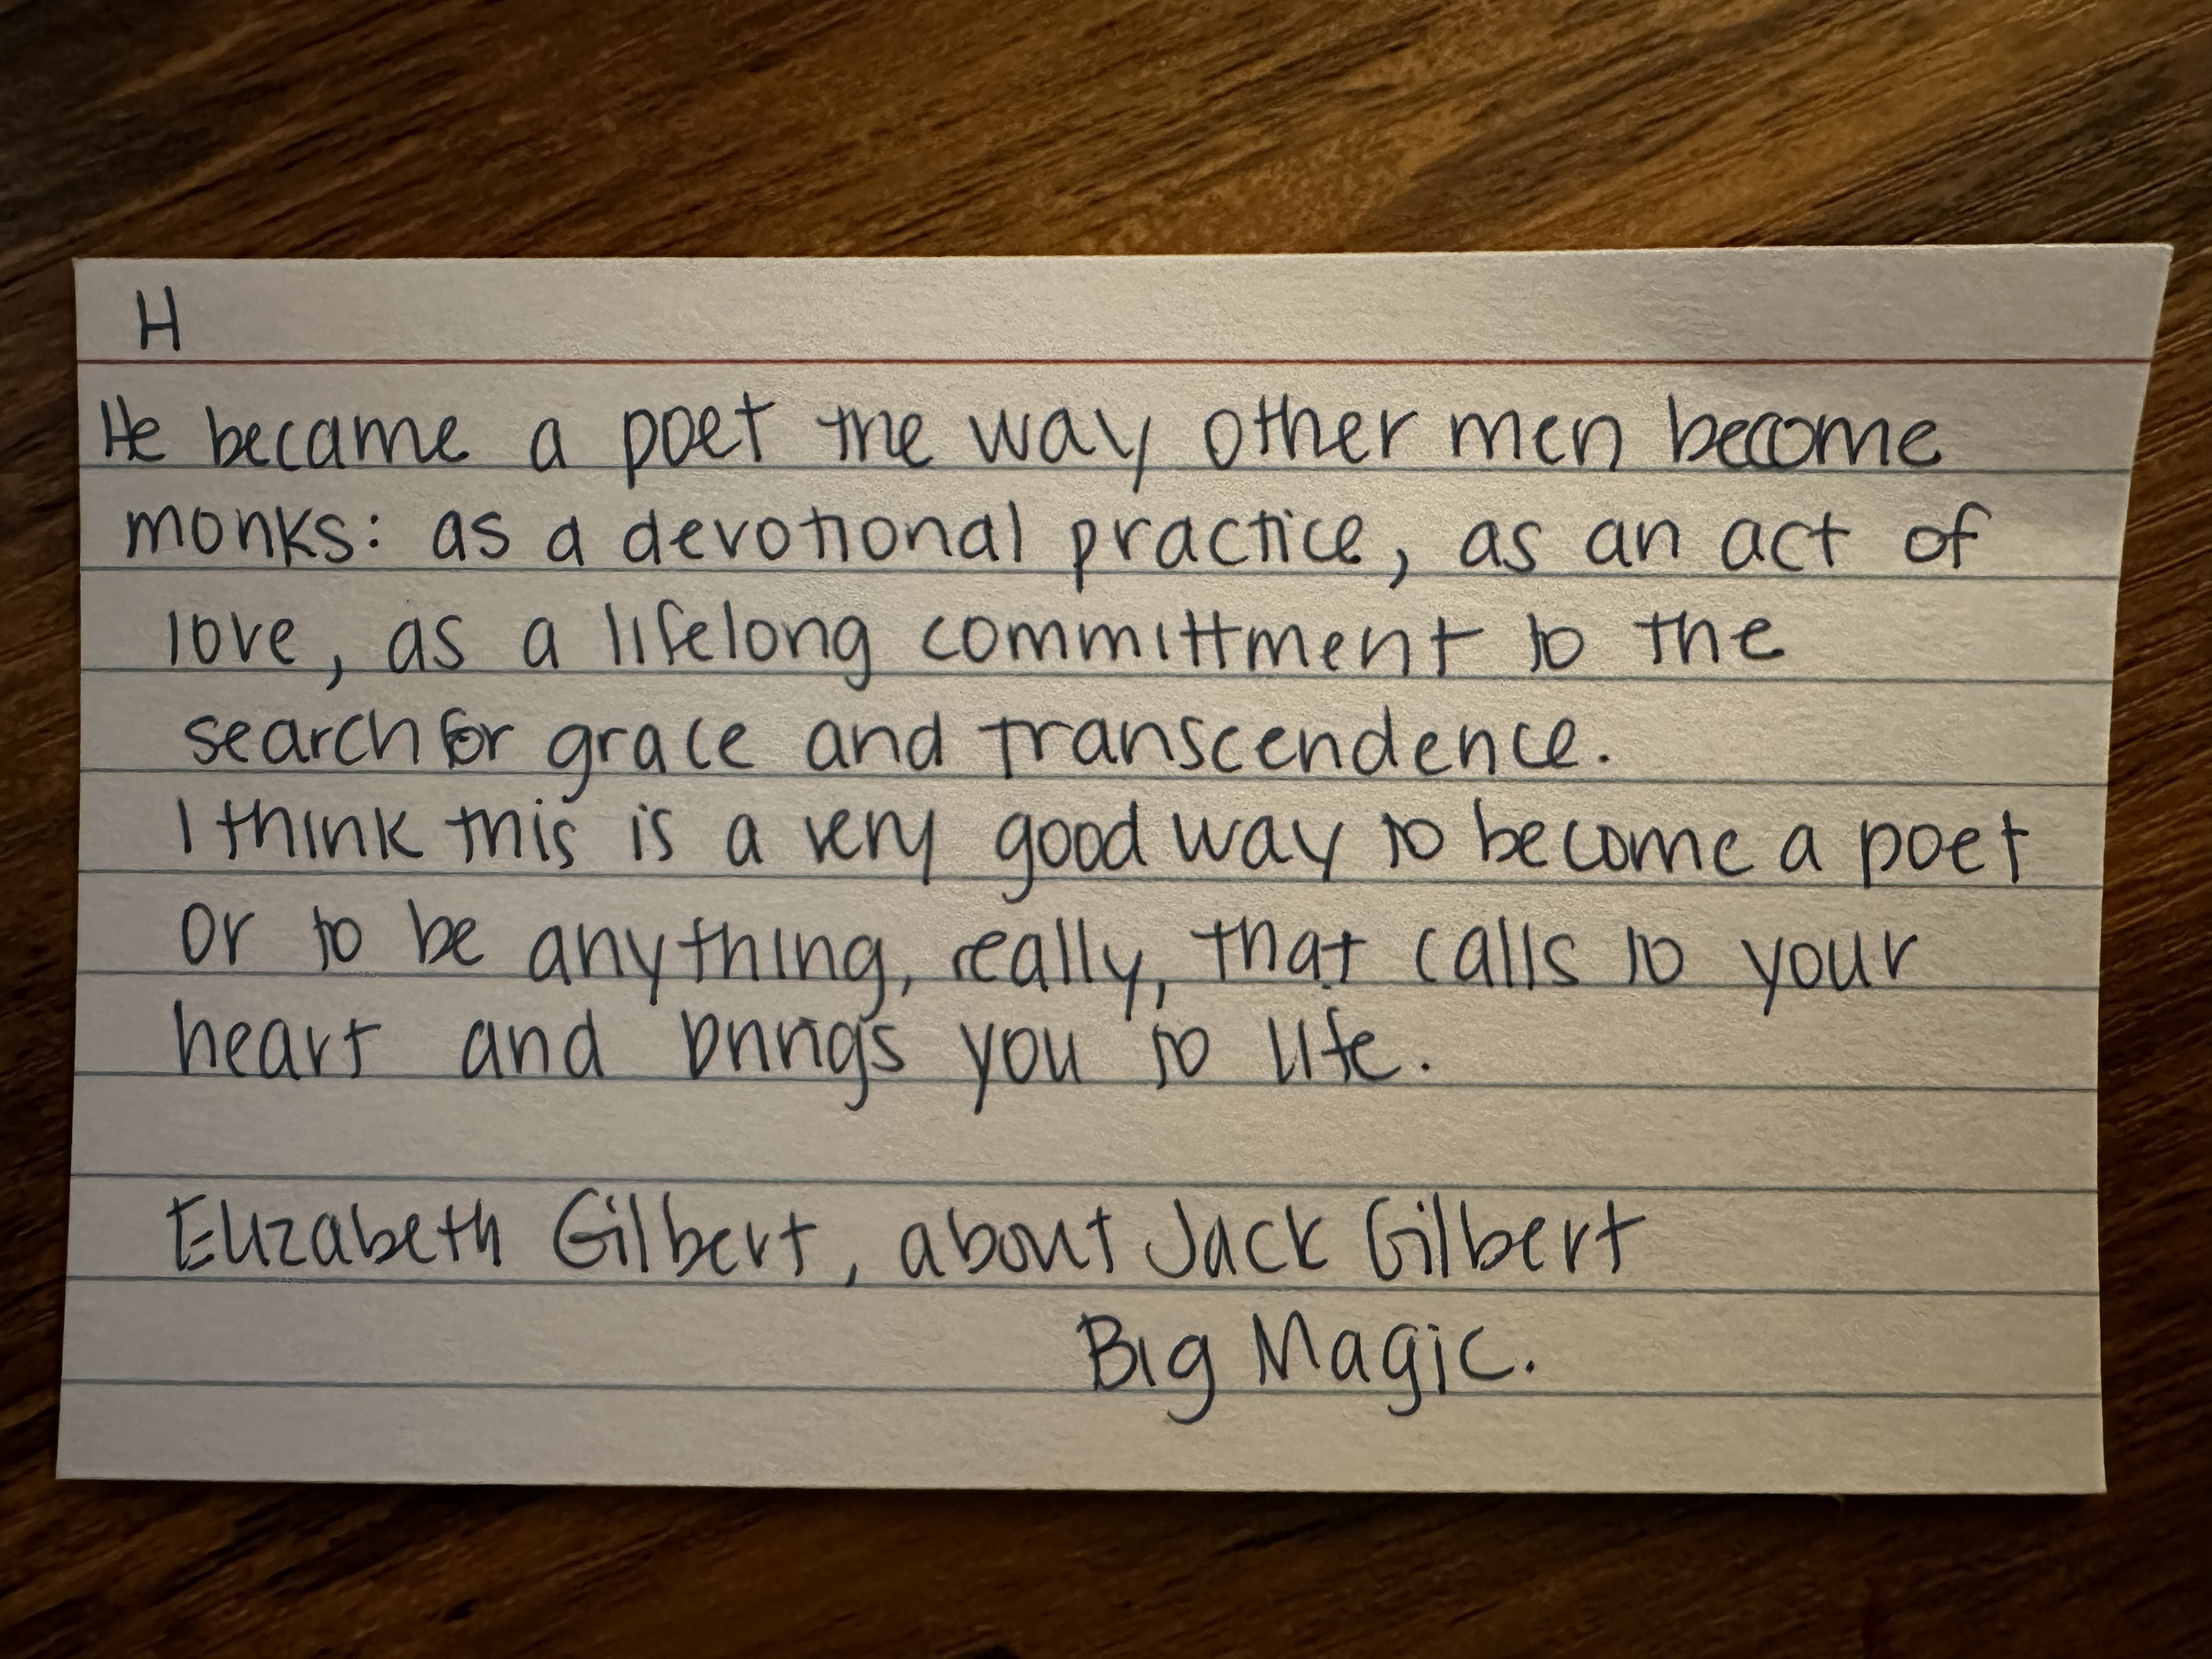 H
He became a poet the way other men become
monks: as a devotional practice, as an act of
love, as a lifelong committment to the
search for grace and transcendence.
I think this is a very good way to become a poet
or to be anything, really, that calls to your
heart and brings you to life.
Elizabeth Gilbert, about Jack Gilbert
Big Magic.